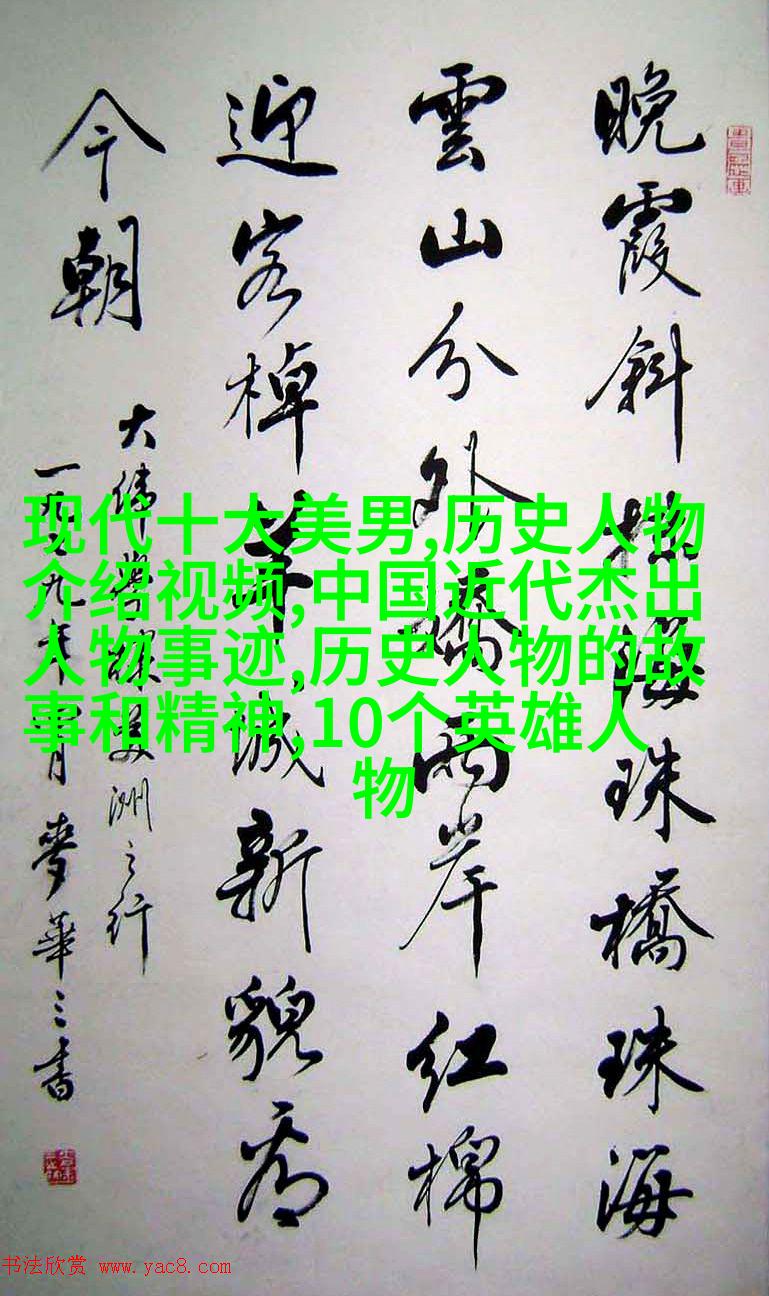 晚霞斜抹海珠橋珠海
雲山分外嬌兩岸紅棉
迎客棹羊城新貌看
今朝
大 美洲之行
一九五九年 月麥華三書
现代十大美男,历史人物
介绍视频,中国近代杰出
人物事迹,历史人物的故
事和精神,10个英雄人
物
书法欣赏 www.yac8.com